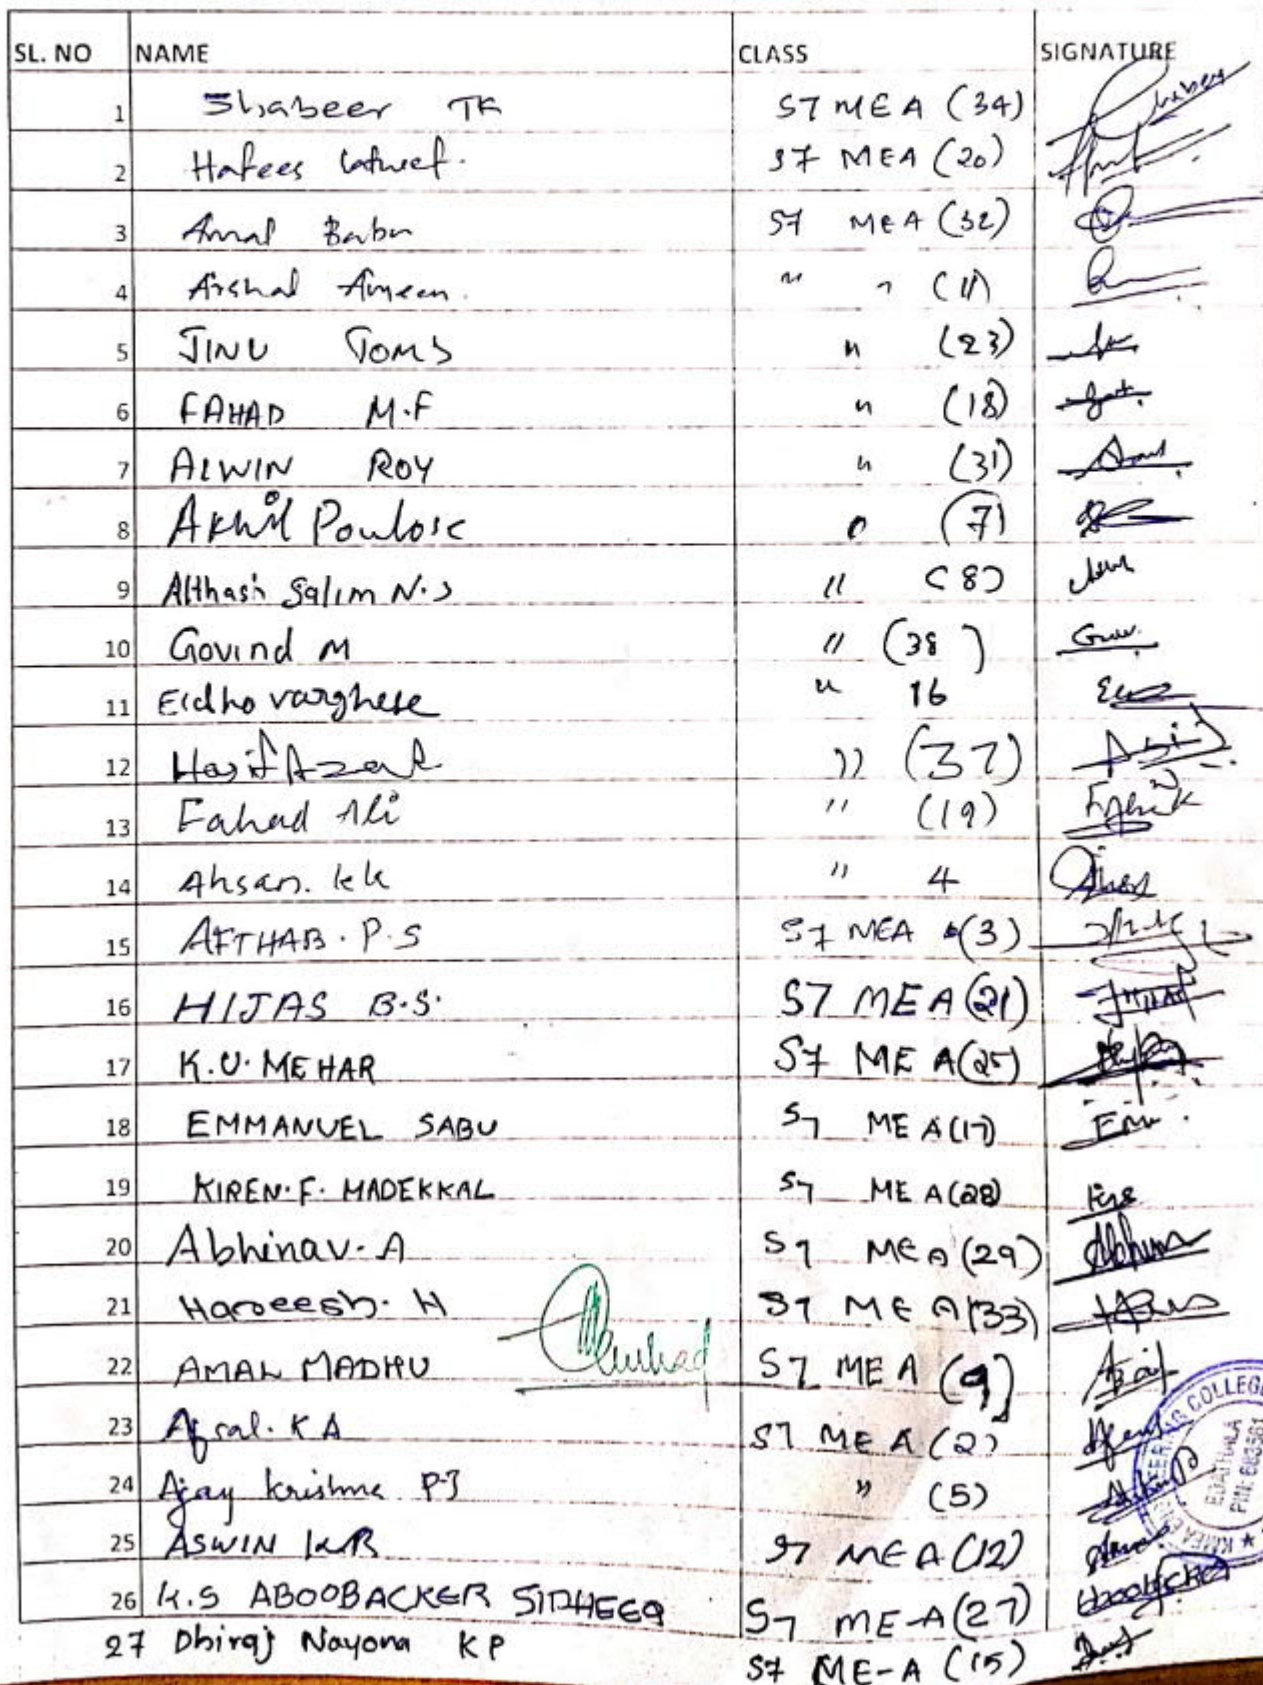 SL. NO NAME CLASS SIGNATURE
1 Shabeer TK S7 MEA (34) Shabeer
2 Hafees Latheef. S7 MEA (20)
3 Amal Babu S7 MEA (32)
4 Arshal Ameen. " " (11)
5 JINU TOMS " (23)
6 FAHAD M.F " (18)
7 ALWIN ROY " (31)
8 Akhil Poulose " (7)
9 Althash Salim N.S " (8)
10 Govind M " (38)
11 Eldho varghese " 16
12 Hasif Azad " (37)
13 Fahad Ali " (19)
14 Ahsan. kk " 4
15 AFTHAB. P.S S7 MEA (3)
16 HIJAS B.S. S7 MEA (21)
17 K.U. MEHAR S7 MEA (25)
18 EMMANUEL SABU S7 MEA (17)
19 KIREN.F. MADEKKAL S7 MEA (28)
20 Abhinav. A S7 MEA (29)
21 Hareesh. H S7 MEA (33)
22 AMAL MADHU S7 MEA (9)
23 Afsal. K A S7 MEA (2)
24 Ajay krishna P.J " (5)
25 ASWIN K.B S7 MEA (12)
26 K.S ABOOBACKER SIDHEEQ S7 ME-A (27)
27 Dhiraj Nayona KP S7 ME-A (15)
KMEA ENGINEERING COLLEGE
EDATHALA
PIN: 683561